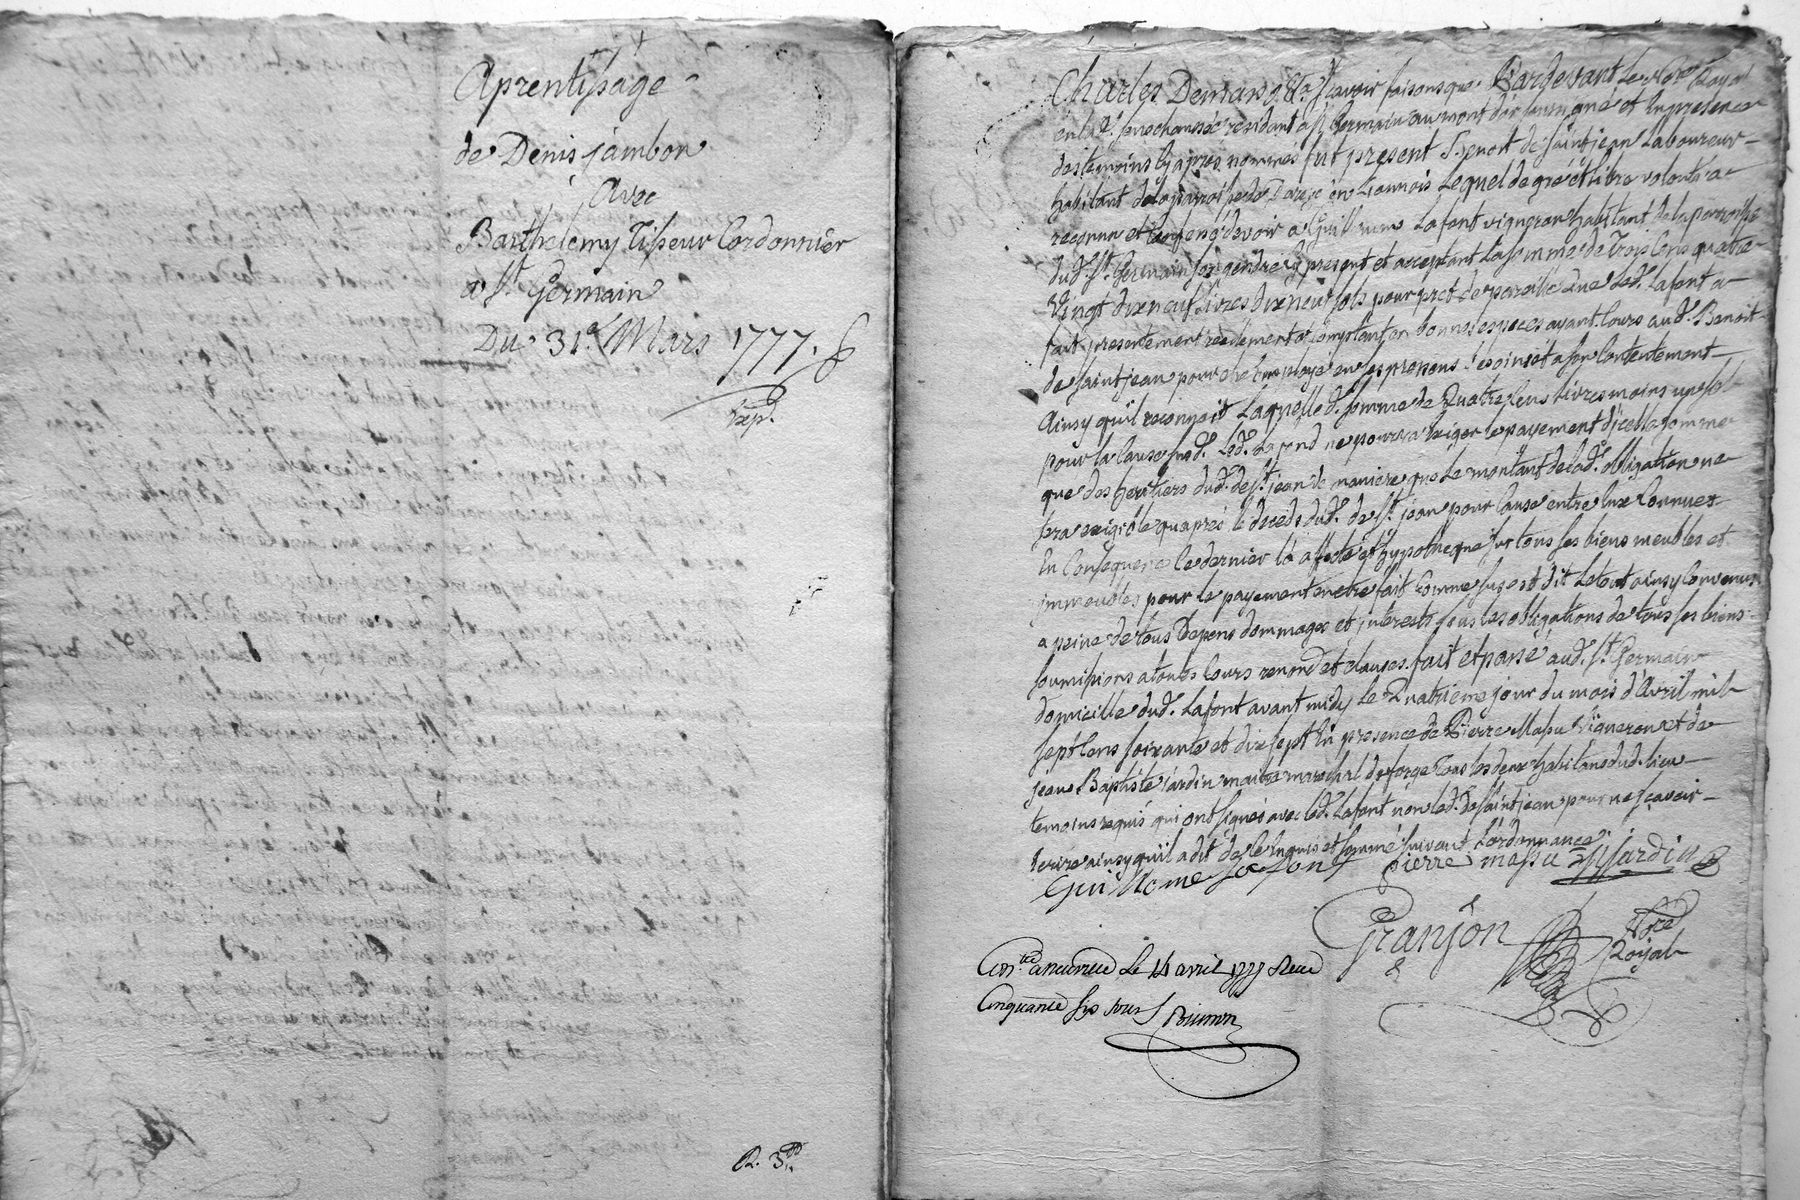 Aprentissage
de Denis jambon
Avec
Barthelemy Tisseur Cordonnier
a St. Germain
Du 31e. Mars 1777.
Exp.
R. 3
Charles Demans &ta. scavoir faisons que Pardevant le Nore. Royal
en la sennechaussée résidant a St. Germain au mont d'or soussigné et en presence
des temoins cy apres nommés fut present Benoit de Saint jean Laboureur
habitant de la paroisse de en Lionnois Lequel de gré et libre volonté a
reconnu et devoir a Guillaume Lafont vigneron habitant de la parroisse
dud. St. Germain son gendre cy present et acceptant La somme de Trois Cens quatre
Vingt dix neuf livres dix neuf sols pour pret de pareille Que Led. Lafont a
fait presentement réelement comptant en bonnes especes ayant Cours aud. Benoit
de Saint jean pour etre employé en ses propres besoins et a son Contentement
Ainsy qu'il reconnoit Laquelle d. somme de Quatre Cens Livres moins un sol
pour la Cause susd. Led. Lafond ne pourra Exiger le payement d'icelle somme
que des heritiers dud. de St. jean de maniere que Le montant de lad. obligation ne
sera exigible qu'aprés le deceds dud. de St. jean pour Cause entre Eux Connues
En Consequence Ce dernier la affecté et hypotheque sur tous ses biens meubles et
immeubles pour le payement en etre fait Comme sus est dit Le tout ainsy Convenus
a peine de tous Depens dommages et interests sous les obligations de tous ses biens
soumissions a toutes Cours renond. et clauses. fait et passé aud. St. Germain
domicille dud. Lafont avant midy Le Quatrieme jour du mois d'Avril mil
sept Cens soixante et dix sept En presence de Pierre Massu Vigneron et de
jean Baptiste jardin maitre marechal de forge Tous les deux habitans dud. lieu
temoins requis qui ont signés avec led. Lafont non led. de Saint jean pour ne sçavoir
Ecrire ainsy qu'il a dit de ce Enquis et sommé suivant L'ordonnance
Guillaome Lafont pierre massu jardin
Granjon Nore
Royal
Con. a neuville Le 14 avril 1777 Recu
Cinquante six sous